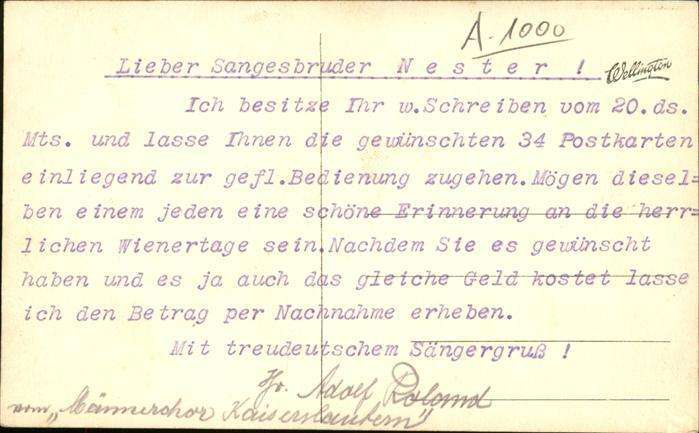 A. 1000
Lieber Sangesbruder Nester !
Wellington
Ich besitze Ihr w.Schreiben vom 20.ds.
Mts. und lasse Ihnen die gewünschten 34 Postkarten
einliegend zur gefl.Bedienung zugehen.Mögen diesel=
ben einem jeden eine schöne Erinnerung an die herr=
lichen Wienertage sein.Nachdem Sie es gewünscht
haben und es ja auch das gleiche Geld kostet lasse
ich den Betrag per Nachnahme erheben.
Mit treudeutschem Sängergruß !
Adolf Roland
vom „Männerchor Kaiserslautern"